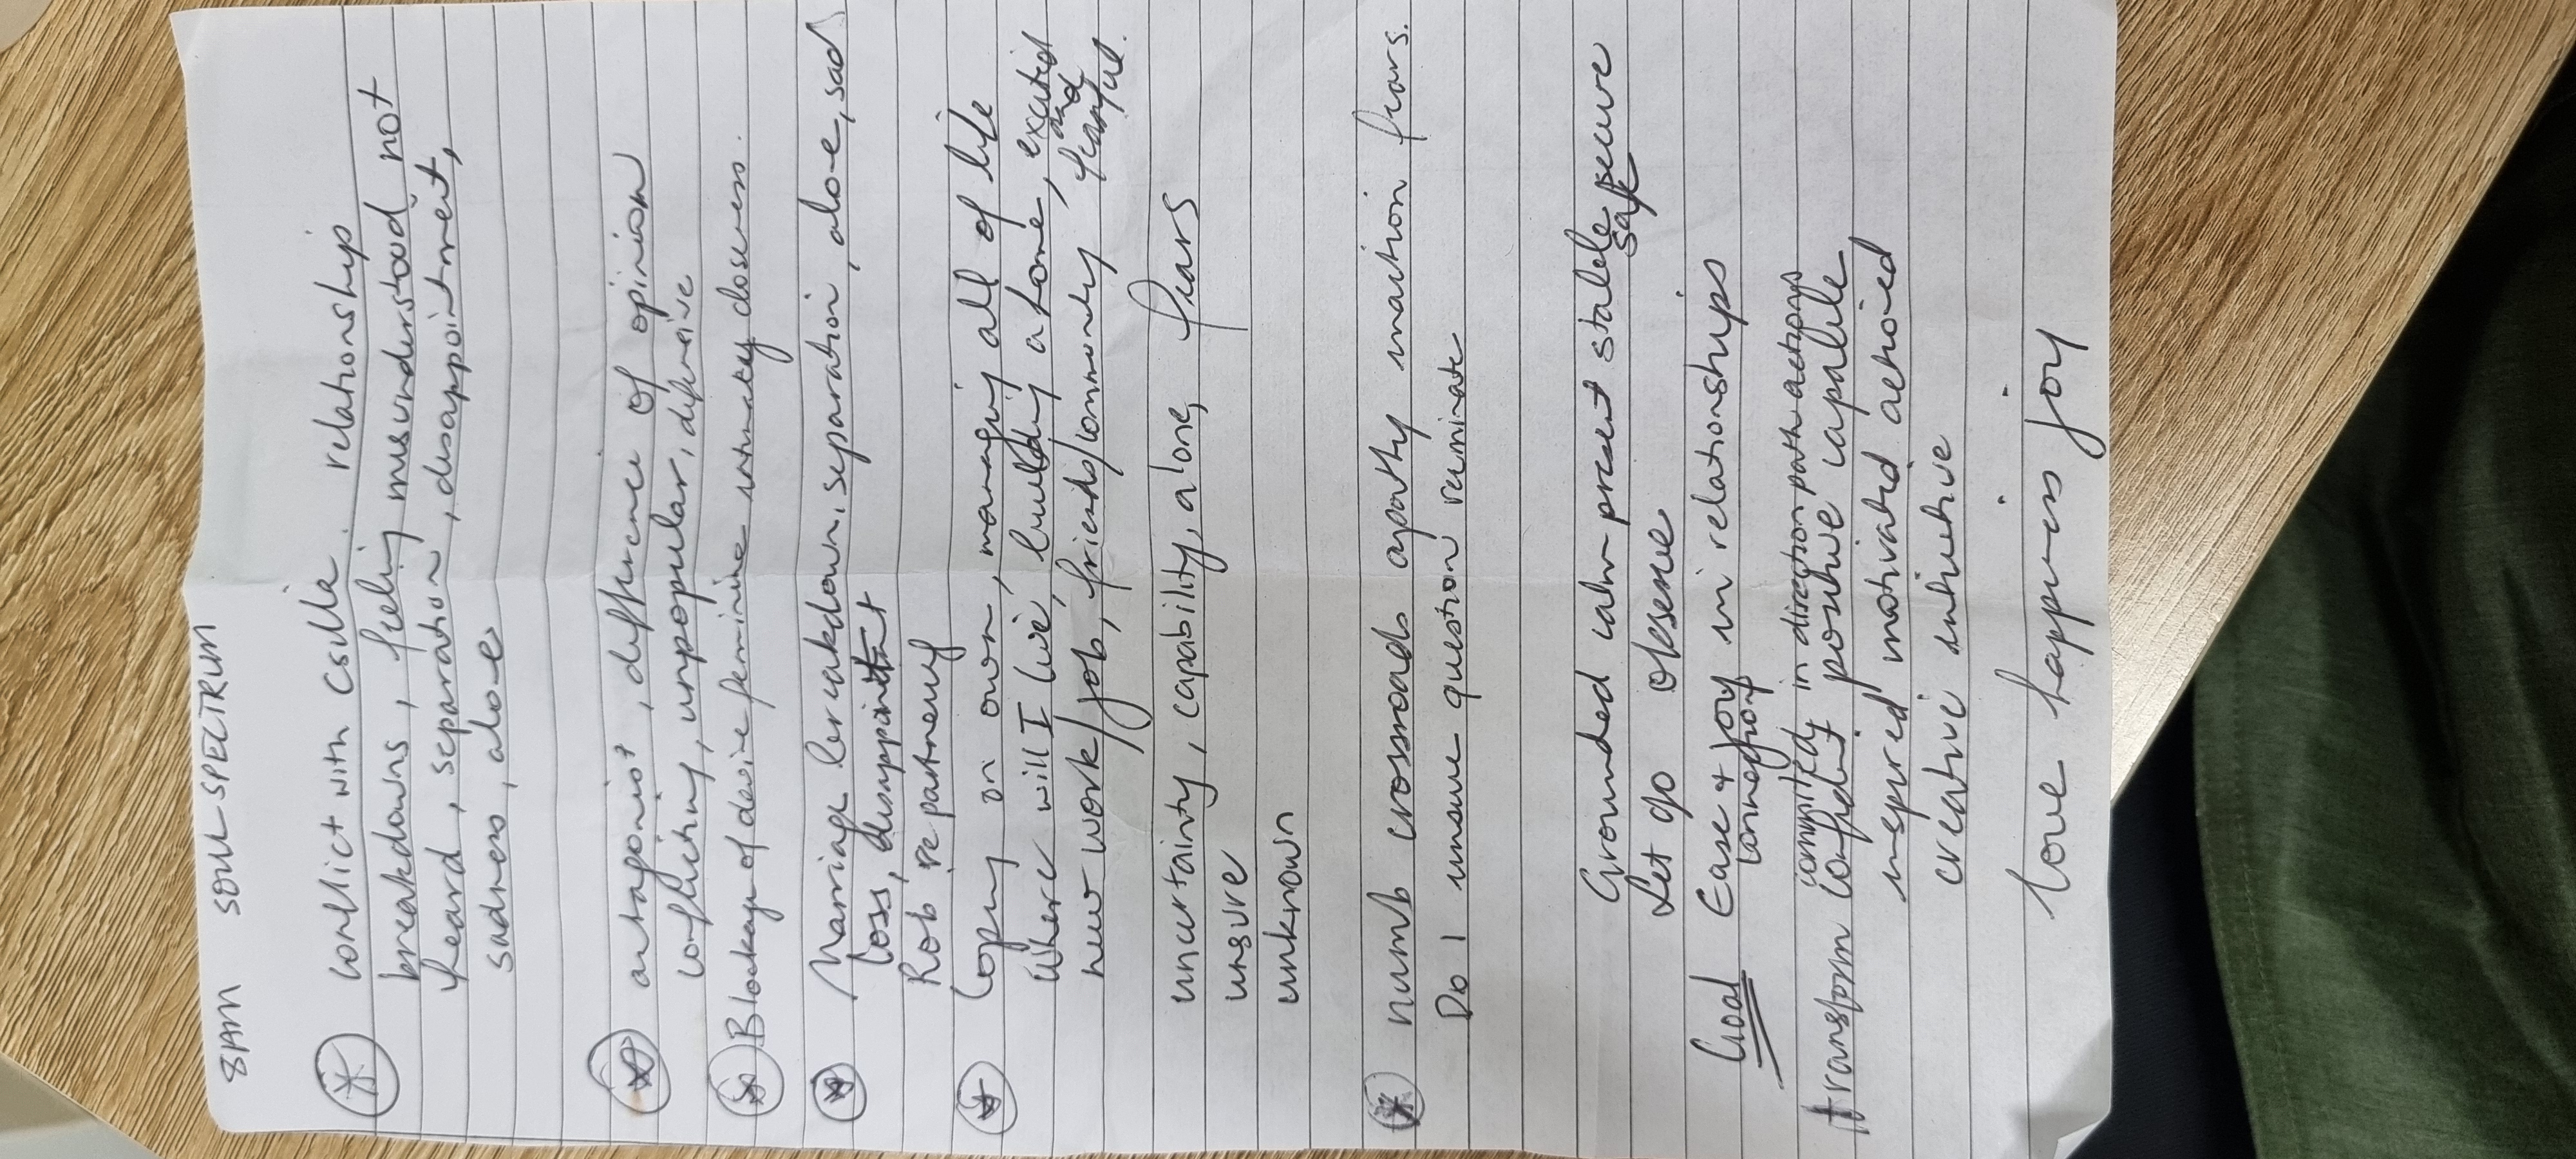 8AM SOUL SPECTRUM
conflict with Csilla. relationship
breakdowns, feeling misunderstood not
heard, separation, disappointment,
sadness, alone
antagonist, difference of opinion
conflicting, unpopular, defensive
Blockage of desire feminine intimacy closeness.
Marriage breakdown, separation, alone, sad
loss,
Rob re partnering
Coping on own, managing all of life
Where will I live, building a home, excited
and
new work/job, friends/community fearful.
uncertainty, capability, alone, fears
unsure
unknown
numb crossroads apathy inaction fears.
Do I unsure question ruminate
Grounded calm present stable secure
safe
Let go observe
Goal Ease + joy in relationships
connection
committed in direction path actions
transform confident positive capable
inspired motivated actioned
creative intuitive
love happiness joy